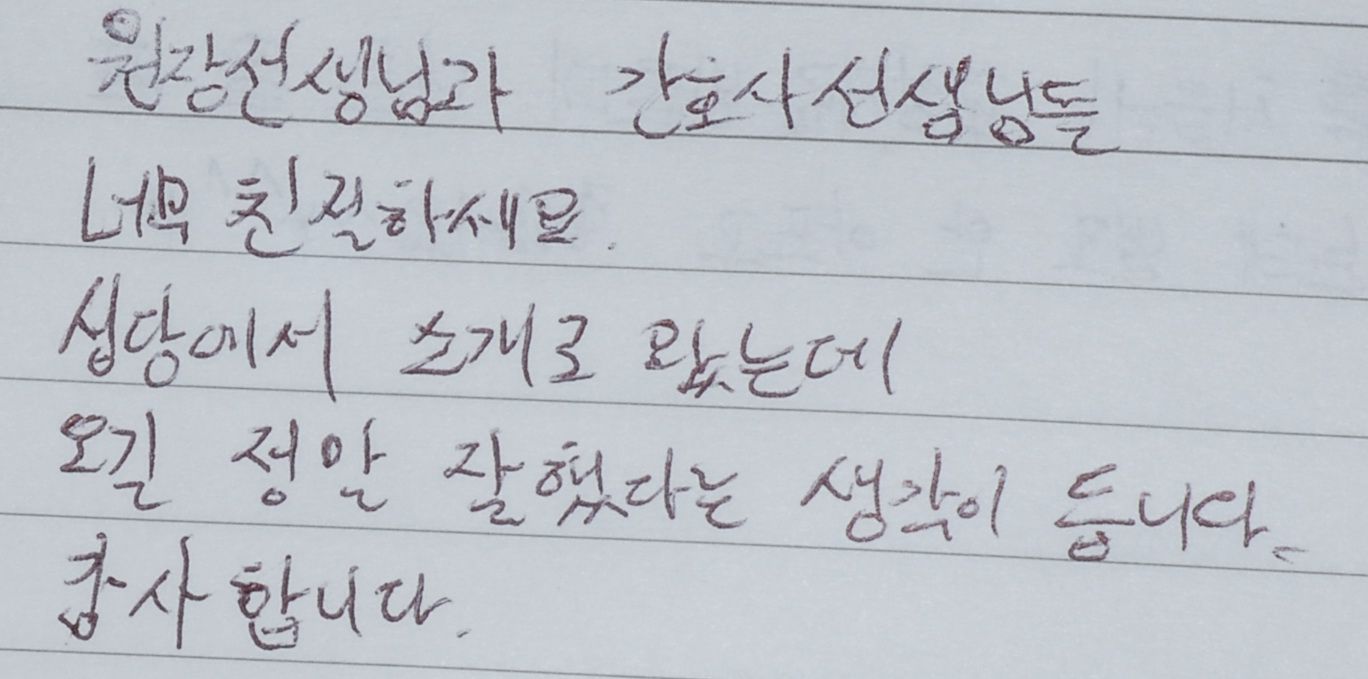 원장선생님과 간호사선생님들
너무 친절하세요.
섭당에서 소개로 왔는데
오길 정말 잘했다는 생각이 듭니다.
감사합니다.